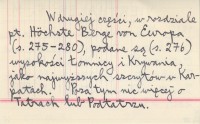 W drugiej części, w rozdziale
pt. Höchste Berge von Europa
(s. 275-280), podane są (s. 276)
wysokości Łomnicy i Krywania
jako najwyższych szczytów w Kar-
patach. Poza tym nic więcej o
Tatrach lub Podtatrzu.